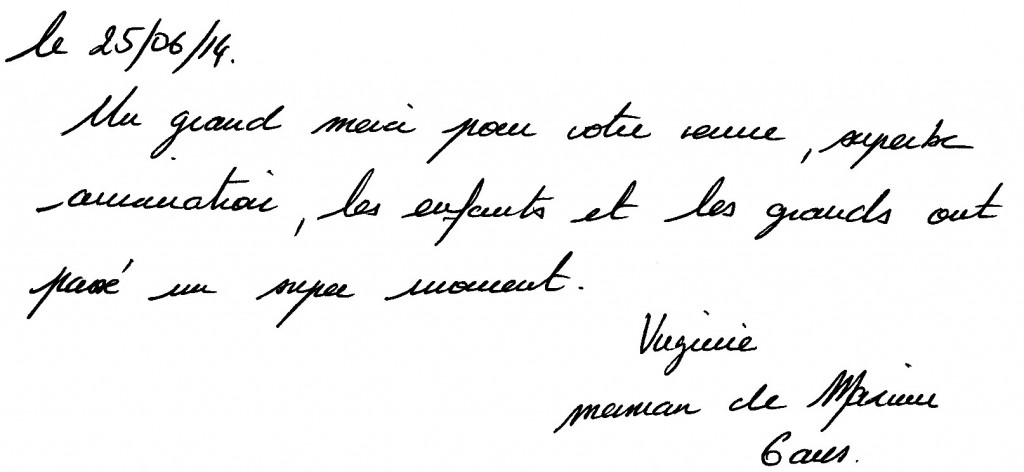 le 25/06/14.
Un grand merci pour votre venue, superbe
animation, les enfants et les grands ont
passé un super moment.
Virginie
maman de Maxime
6 ans.